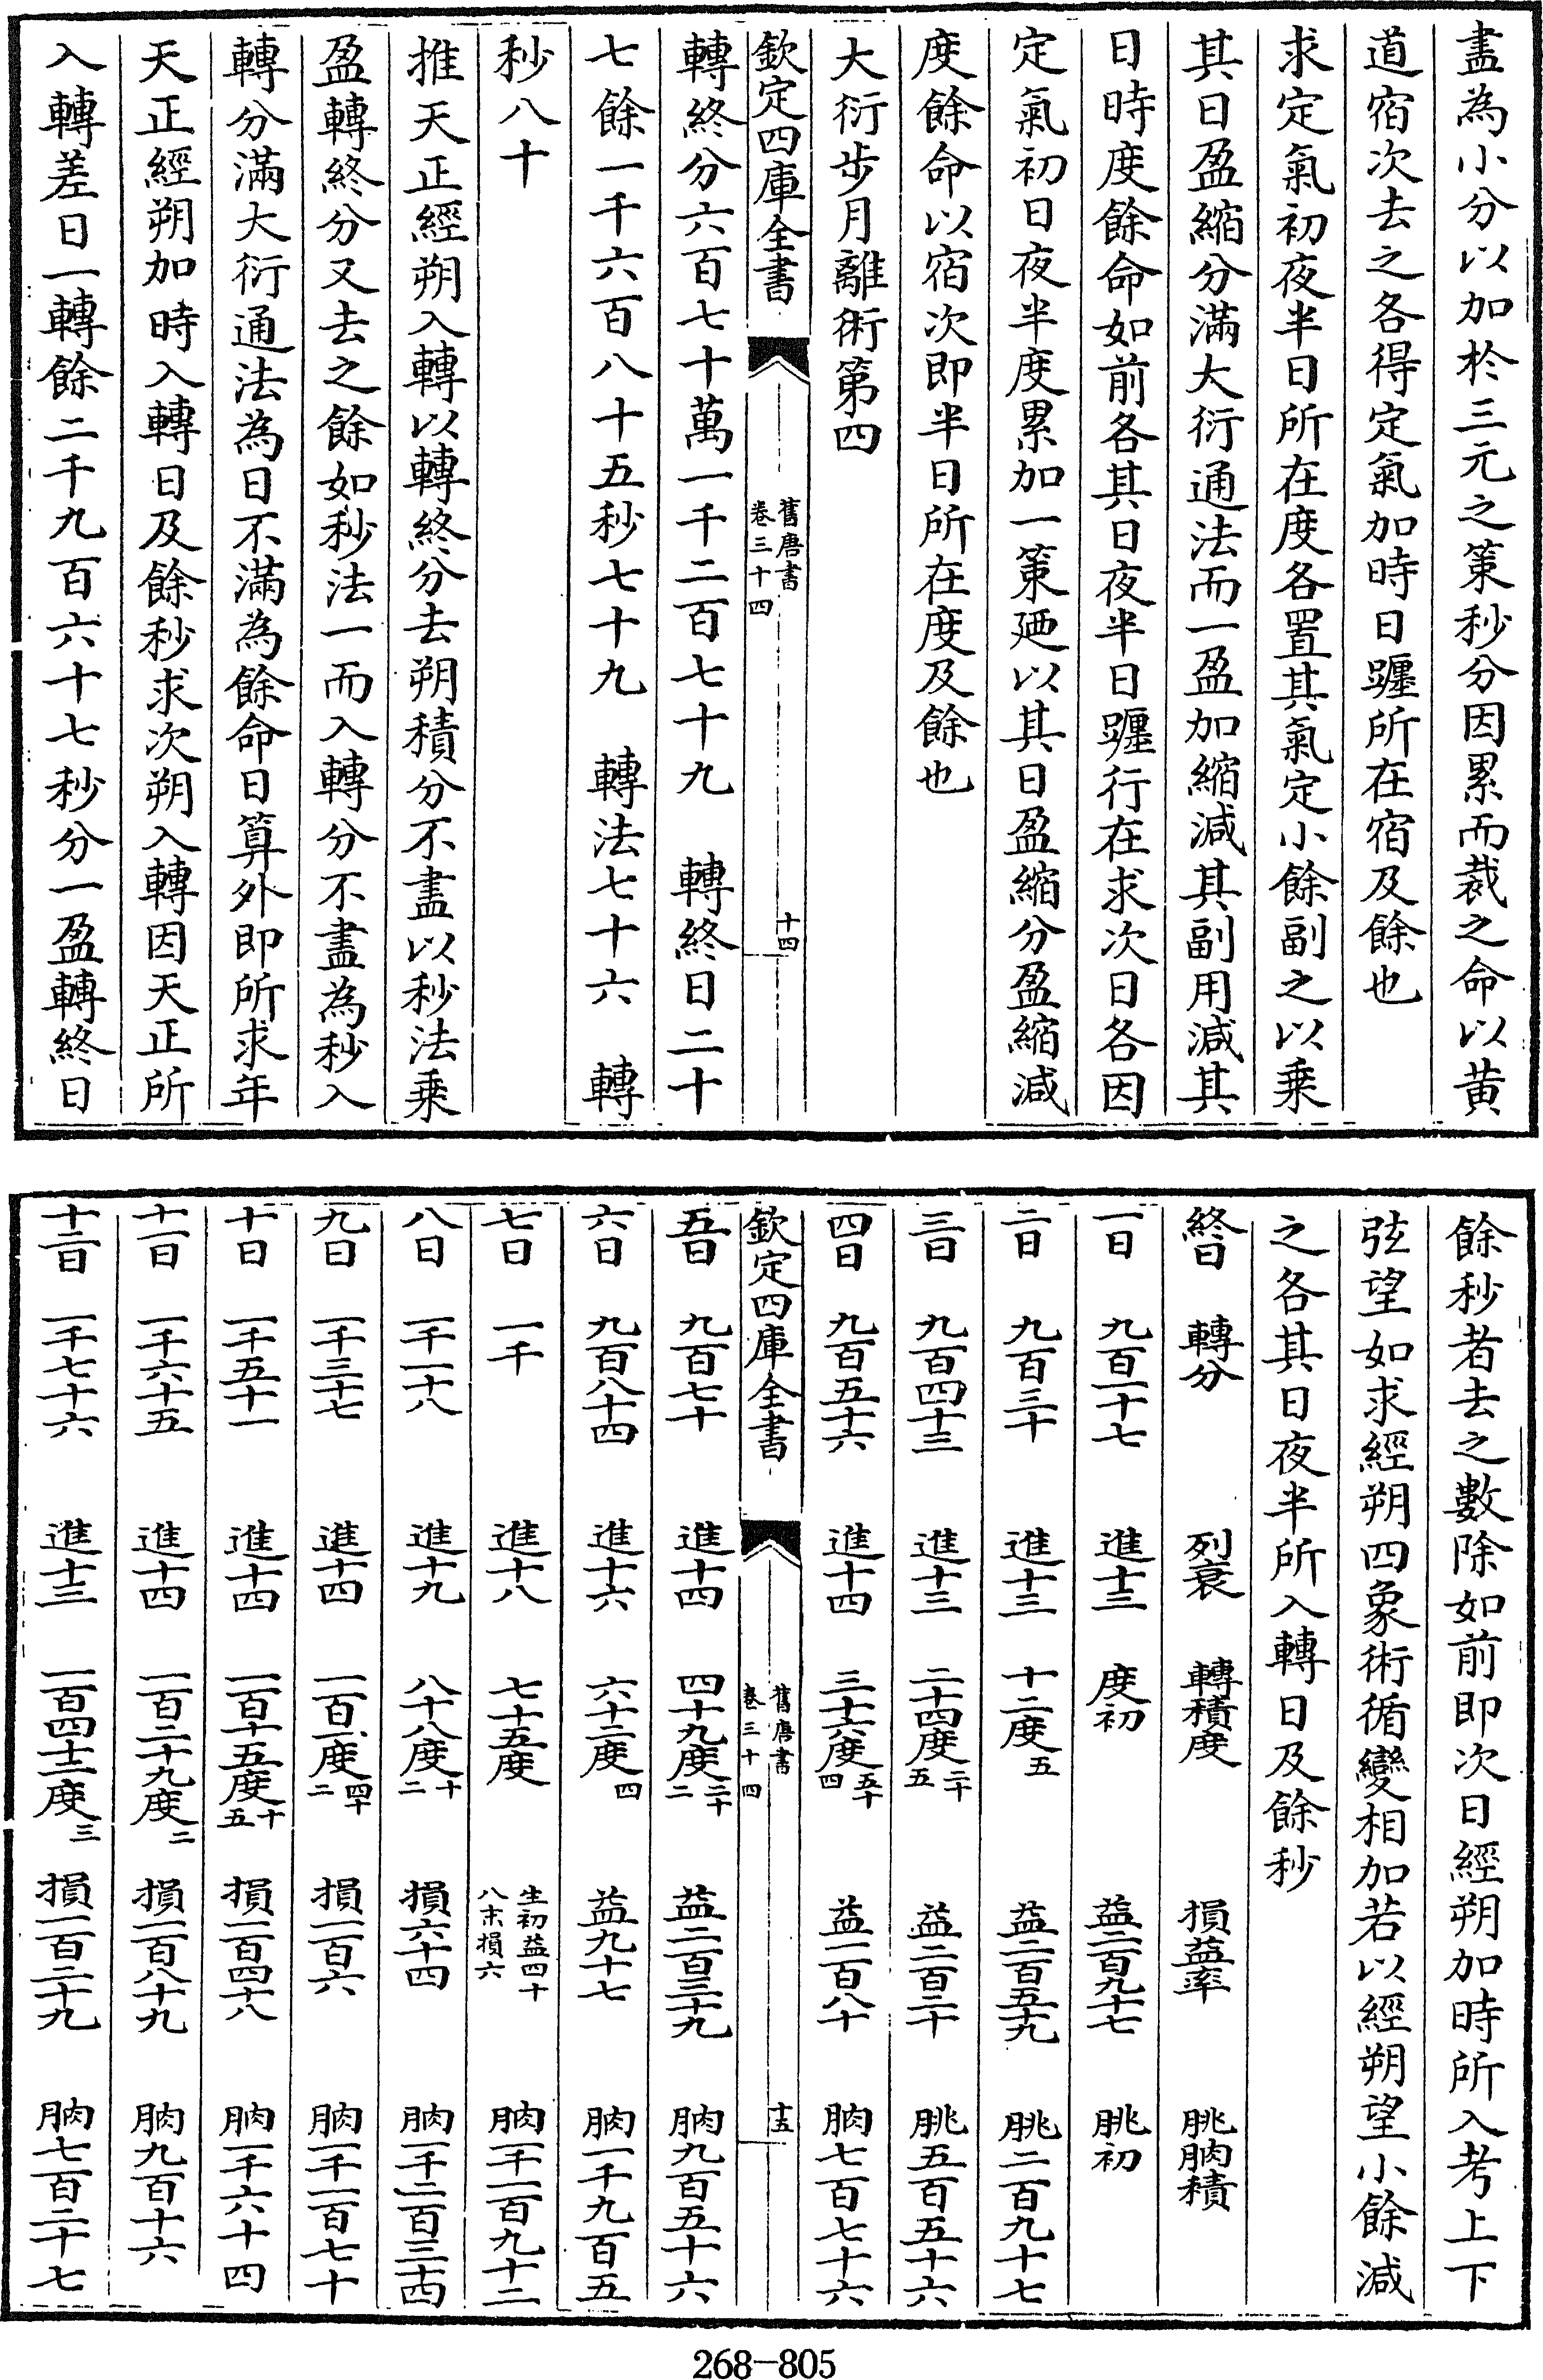 盡為小分以加於三元之策秒分因累而裁之命以黄
道宿次去之各得定氣加時日躔所在宿及餘也
求定氣初夜半日所在度各置其氣定小餘副之以乗
其日盈縮分滿大衍通法而一盈加縮減其副用減其
日時度餘命如前各其日夜半日躔行在求次日各因
定氣初日夜半度累加一策廼以其日盈縮分盈縮減
度餘命以宿次即半日所在度及餘也
大衍步月離術第四
欽定四庫全書 舊唐書卷三十四 十四
轉終分六百七十萬一千二百七十九 轉終日二十
七餘一千六百八十五秒七十九 轉法七十六 轉
秒八十
推天正經朔入轉以轉終分去朔積分不盡以秒法乗
盈轉終分又去之餘如秒法一而入轉分不盡為秒入
轉分滿大衍通法為日不滿為餘命日算外即所求年
天正經朔加時入轉日及餘秒求次朔入轉因天正所
入轉差日一轉餘二千九百六十七秒分一盈轉終日
餘秒者去之數除如前即次日經朔加時所入考上下
弦望如求經朔四象術循變相加若以經朔望小餘減
之各其日夜半所入轉日及餘秒
終日 轉分 列衰 轉積度 損益率 朓朒積
一日 九百一十七 進十三 度初 益二百九十七 朓初
二日 九百三十 進十三 十二度五 益二百五十九 朓二百九十七
三日 九百四十三 進十三 二十四度二十五 益二百二十 朓五百五十六
四日 九百五十六 進十四 三十六度五十四 益一百八十 朒七百七十六
欽定四庫全書 舊唐書卷三十四 十五
五日 九百七十 進十四 四十九度二十二 益二百三十九 朒九百五十六
六日 九百八十四 進十六 六十二度四 益九十七 朒一千九百五
七日 一千 進十八 七十五度 生初益四十八末損六 朒一千一百九十二
八日 一千一十八 進十九 八十八度十二 損六十四 朒一千二百三十四
九日 一千三十七 進十四 一百一度四十二 損一百六 朒一千一百七十
十日 一千五十一 進十四 一百十五度十五 損一百四十八 朒一千六十四
十一日 一千六十五 進十四 一百二十九度二 損一百八十九 朒九百十六
十二日 一千七十六 進十三 一百四十三度三 損一百二十九 朒七百二十七
268-805